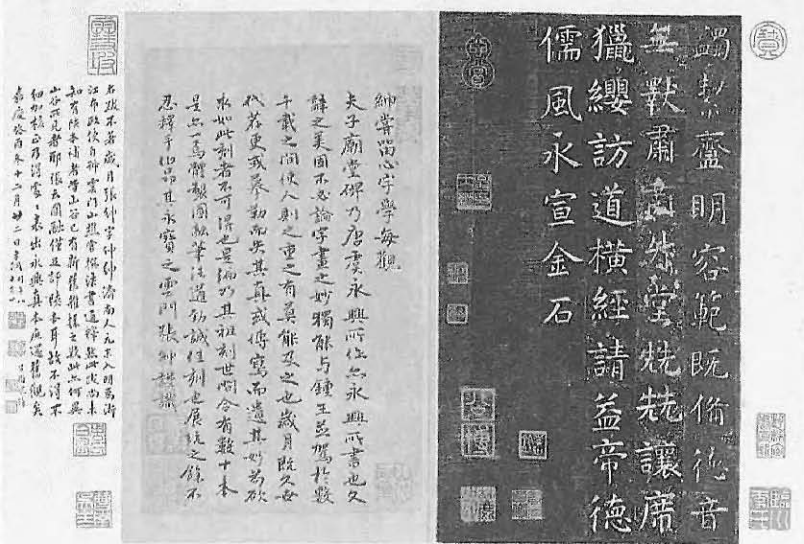 蠲絜齍明容範既備德音
無斁肅肅升堂兟兟讓席
獵纓訪道橫經請益帝德
儒風永宣金石
紳嘗留心字學每觀
夫子廟堂碑乃唐虞永興所作亦永興所書也文
辭之美固不必論字畫之妙獨能与鍾王並駕於數
千載之間使人則之重之有莫能及之也歲月既久世
代荐更或摹勒而失其真或傳寫而遺其妙若欲
求如此刻者不可得也是編乃其祖刻世間今有數十本
是亦一寫體製圓融筆法遒勁誠佳刻也展玩之餘不
忍釋手其永寶之雲門張紳謹識
右跋不著歲月張紳字仲紳濟南人元末入明為浙
江布政使自称雲門山樵常法書通釋然此跋尚未
知有陕本山谷已有新舊雜揉之歎此亦何異
山谷所見者耶圓融僅且許陕本耳故不得不
細加核正乃得表出永興真本舊觀矣
嘉慶癸酉冬十二月廿二日